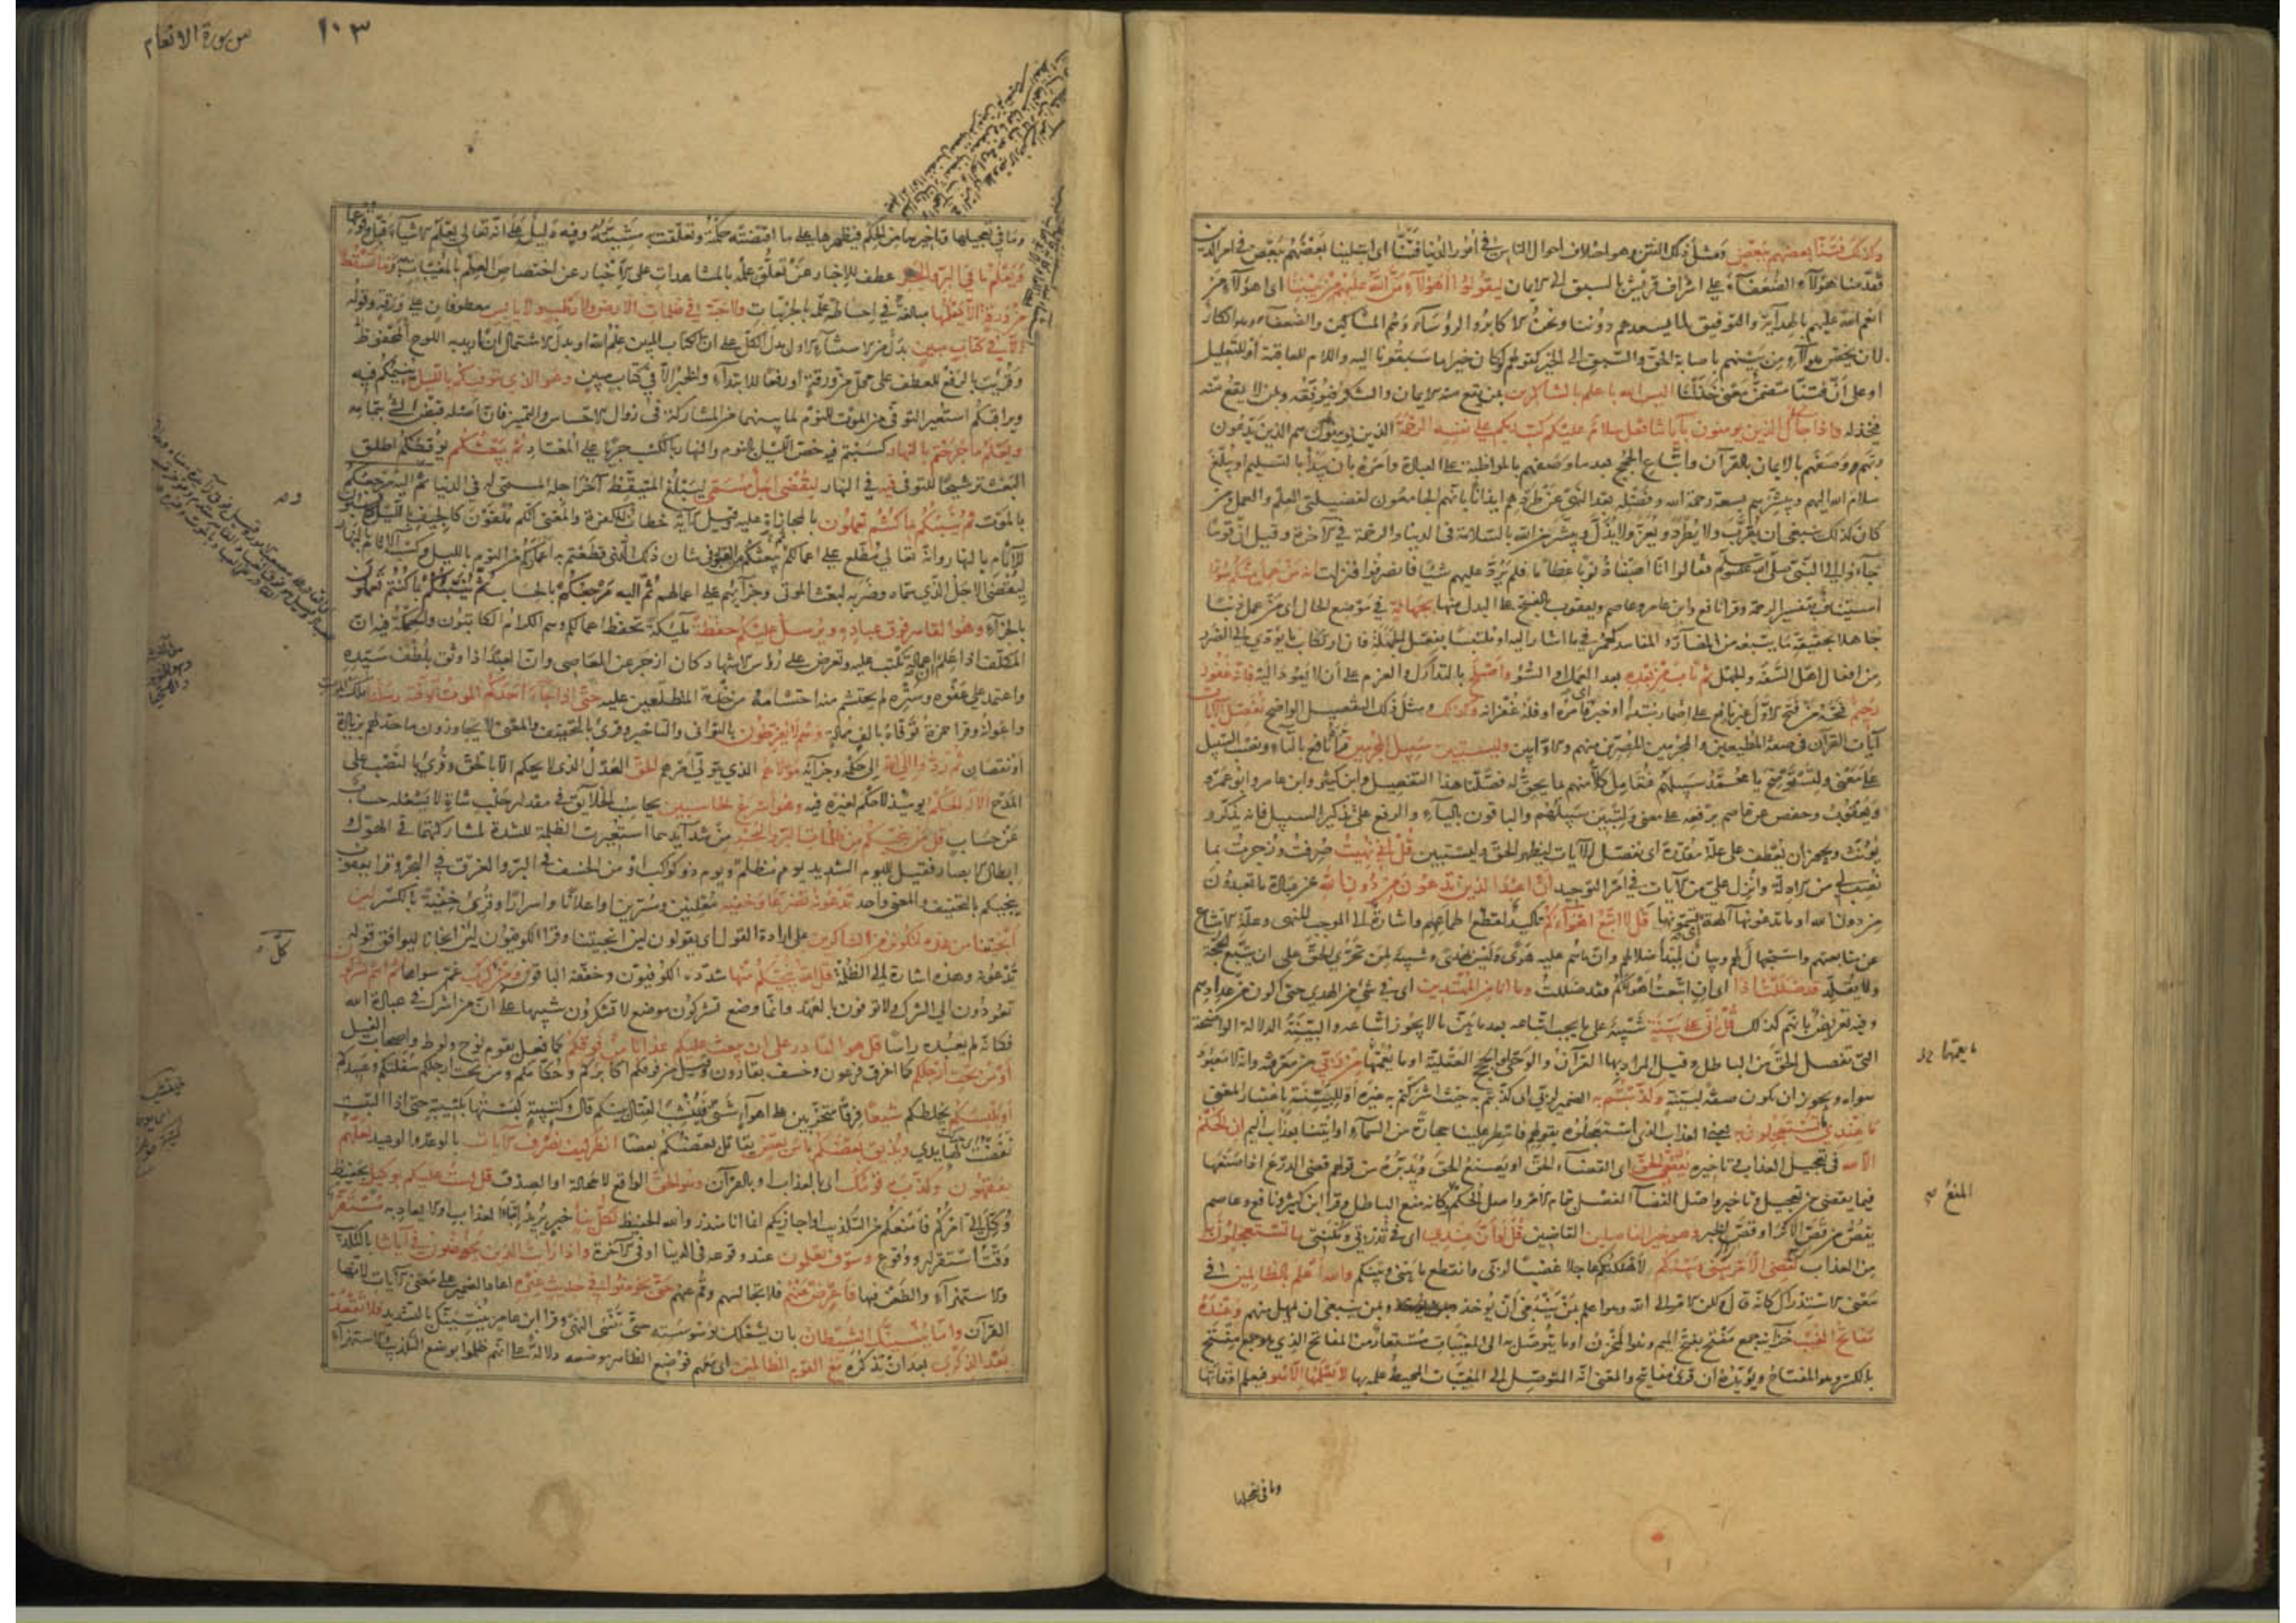 وكذلك فتنا بعضهم ببعض ومثل ذلك الفتن وهو اختلاف احوال الناس في امور الدنيا فتنا اى ابتلينا بعضهم ببعض في امر الدين
فقدمنا هؤلاء الضعفاء على اشراف قريش بالسبق الى الايمان ليقولوا اهؤلاء من الله عليهم من بيننا اى هؤلاء من
انعم الله عليهم بالهداية والتوفيق لما يسعدهم دوننا ونحن الاكابر والرؤساء وهم المساكين والضعفاء وهو انكار
لان يخص هؤلاء من بينهم باصابة الحق والسبق الى الخير كقولهم لو كان خيرا ما سبقونا اليه واللام للعاقبة او للتعليل
او على ان فتنا متضمن معنى خذلنا اليس الله باعلم بالشاكرين بمن يقع منه الايمان والشكر فيوفقه وبمن لا يقع منه
فيخذله واذا جاءك الذين يؤمنون بآياتنا فقل سلام عليكم كتب ربكم على نفسه الرحمة الذين يؤمنون هم الذين يدعون
ربهم وصفهم بالايمان بالقرآن واتباع الحجج بعد ما وصفهم بالمواظبة على العبادة وامره بان يبدأ بالتسليم او يبلغ
سلام الله اليهم ويبشرهم بسعة رحمة الله وفضله بعد النهى عن طردهم ايذانا بانهم الجامعون لفضيلتى العلم والعمل ومن
كان كذلك ينبغى ان يقرب ولا يطرد ويعز ولا يذل ويبشر من الله بالسلامة فى الدنيا والرحمة في الآخرة وقيل ان قوما
جاؤا الى النبى صلى الله عليه وسلم فقالوا انا اصبنا ذنوبا عظاما فلم يرد عليهم شيئا فانصرفوا فنزلت انه من عمل منكم سوءا
استيناف بتفسير الرحمة وقرأ نافع وابن عامر وعاصم ويعقوب بالفتح على البدل منها بجهالة في موضع الحال اى من عمل ذنبا
جاهلا بحقيقة ما يتبعه من المضار والمفاسد كعمر فيما اشار اليه او ملتبسا بفعل الجهالة فان ارتكاب ما يؤدى الى الضرر
من افعال اهل السفه والجهل ثم تاب من بعده بعد العمل او السوء واصلح بالتدارك والعزم على ان لا يعود اليه فانه غفور
رحيم فتحه من فتح الاول غير نافع على اضمار مبتدأ او خبر اى فامره او فله غفرانه وكذلك ومثل ذلك التفصيل الواضح نفصل الآيات
آيات القرآن في صفة المطيعين والمجرمين المصرين منهم والاوابين ولتستبين سبيل المجرمين قرأ نافع بالتاء ونصب السبيل
على معنى ولتستوضح يا محمد سبيلهم فتعامل كلا منهم بما يحق له فصلنا هذا التفصيل وابن كثير وابن عامر وابو عمرو
ويعقوب وحفص عن عاصم برفعه على معنى ولتبين سبيلهم والباقون بالياء والرفع على تذكير السبيل فانه يذكر و
يؤنث ويجوز ان يعطف على علة مقدرة اى نفصل الآيات ليظهر الحق وليستبين قل انى نهيت صرفت وزجرت بما
نصب لى من الادلة وانزل على من الآيات في امر التوحيد ان اعبد الذين تدعون من دون الله عن عبادة ما تعبدون
من دون الله او ما تدعونها آلهة اى تسمونها قل لا اتبع اهواءكم تأكيد لقطع اطماعهم واشارة الى الموجب للنهى وعلة الامتناع
عن متابعتهم واستجهال لهم وبيان لمبدأ ضلالهم وان ما هم عليه هوى وليس بهدى وتنبيه لمن تحرى الحق على ان يتبع الحجة
ولا يقلد قد ضللت اذا اى ان اتبعت اهواءكم فقد ضللت وما انا من المهتدين اى في شئ من الهدى حتى اكون من عدادهم
وفيه تعريض بانهم كذلك قل انى على بينة تنبيه على ما يجب اتباعه بعد ما بين ما لا يجوز اتباعه والبينة الدلالة الواضحة
التى تفصل الحق من الباطل وقيل المراد بها القرآن والوحى او الحجج العقلية او ما يعمها من ربى من معرفته وانه لا معبود
سواه ويجوز ان يكون صفة لبينة وكذبتم به الضمير لربى اى كذبتم به حيث اشركتم به غيره او للبينة باعتبار المعنى
ما عندى ما تستعجلون به يعنى العذاب الذى استعجلوه بقولهم فامطر علينا حجارة من السماء او ائتنا بعذاب اليم ان الحكم
الا لله فى تعجيل العذاب وتاخيره يقضى الحق اى القضاء الحق او يصنع الحق ويدبره من قولهم قضى الدرع اذا صنعها
فيما يقضى من تعجيل وتاخير واصل القضاء الفصل بتمام الامر واصل الحكم المنع فكانه منع الباطل وقرأ ابن كثير ونافع وعاصم
يقص من قص الاثر او قص الخبر وهو خير الفاصلين القاضين قل لو ان عندى اى في قدرتى ومكنتى ما تستعجلون به
من العذاب لقضى الامر بينى وبينكم لاهلكتكم عاجلا غضبا لربى وانقطع ما بينى وبينكم والله اعلم بالظالمين في
معنى الاستدراك كانه قال ولكن الامر الى الله وهو اعلم بمن ينبغى ان يؤخذ وبمن ينبغى ان يمهل منهم وعنده
مفاتح الغيب خزائنه جمع مفتح بفتح الميم وهو المخزن او ما يتوصل به الى المغيبات مستعار من المفاتح الذى هو جمع مفتح
بالكسر وهو المفتاح ويؤيده ان قرئ مفاتيح والمعنى انه المتوصل الى المغيبات المحيط علمه بها لا يعلمها الا هو فيعلم اوقاتها
ما يعمها
المنع
وما في تعجيلها
من سورة الانعام
١٠٣
وما في تعجيلها وتاخيرها من الحكم فيظهرها على ما اقتضته حكمته وتعلقت به مشيئته وفيه دليل على انه تعالى يعلم الاشياء قبل وقوعها
ويعلم ما في البر والبحر عطف للاخبار عن تعلق علمه بالمشاهدات على الاخبار عن اختصاص العلم بالمغيبات به وما تسقط
من ورقة الا يعلمها مبالغة في احاطة علمه بالجزئيات ولا حبة في ظلمات الارض ولا رطب ولا يابس معطوفات على ورقة وقوله
الا في كتاب مبين بدل من الاستثناء الاول بدل الكل على ان الكتاب المبين علم الله او بدل الاشتمال ان اريد به اللوح المحفوظ
وقرئت بالرفع للعطف على محل من ورقة او رفعا للابتداء والخبر الا في كتاب مبين وهو الذى يتوفيكم بالليل ينيمكم فيه
ويراقبكم استعير التوفى من الموت للنوم لما بينهما من المشاركة فى زوال الاحساس والتمييز فان اصله قبض الشئ بتمامه
ويعلم ما جرحتم بالنهار كسبتم فيه خص الليل بالنوم والنهار بالكسب جريا على المعتاد ثم يبعثكم يوقظكم اطلق
البعث ترشيحا للتوفى فيه في النهار ليقضى اجل مسمى ليبلغ المتيقظ آخر اجله المسمى له فى الدنيا ثم اليه مرجعكم
بالموت ثم ينبئكم بما كنتم تعملون بالمجازاة عليه وقيل الآية خطاب للكفرة والمعنى انكم ملقون كالجيف بالليل وكاسبون
للآثام بالنهار وانه تعالى مطلع على اعمالكم يبعثكم من القبور في شان ذلك الذى قطعتم به اعماركم من النوم بالليل وكسب الآثام بالنهار
ليقضى الاجل الذى سماه وضربه لبعث الموتى وجزائهم على اعمالهم ثم اليه مرجعكم بالحساب ثم ينبئكم بما كنتم تعملون
بالجزاء وهو القاهر فوق عباده ويرسل عليكم حفظة ملئكة تحفظ اعمالكم وهم الكرام الكاتبون والحكمة فيه ان
المكلف اذا علم ان اعماله تكتب عليه وتعرض على رؤس الاشهاد كان ازجر عن المعاصى وان العبد اذا وثق بلطف سيده
واعتمد على عفوه وستره لم يحتشم منه احتشامه من خدمه المطلعين عليه حتى اذا جاء احدكم الموت توفته رسلنا ملك الموت
واعوانه وقرأ حمزة توفاه بالف ممالة وهم لا يفرطون بالتوانى والتاخير وقرئ بالتخفيف والمعنى لا يجاوزون ما حد لهم بزيادة
او نقصان ثم ردوا الى الله الى حكمه وجزائه مولاهم الذى يتولى امرهم الحق العدل الذى لا يحكم الا بالحق وقرئ بالنصب على
المدح الا له الحكم يومئذ لا حكم لغيره فيه وهو اسرع الحاسبين يحاسب الخلايق في مقدار حلب شاة لا يشغله حساب
عن حساب قل من ينجيكم من ظلمات البر والبحر من شدائدهما استعيرت الظلمة للشدة لمشاركتهما في الهول
وابطال الابصار فقيل لليوم الشديد يوم مظلم ويوم ذو كواكب او من الخسف فى البر والغرق في البحر وقرأ يعقوب
ينجيكم بالتخفيف والمعنى واحد تدعونه تضرعا وخفية معلنين ومسرين او اعلانا واسرارا وقرئ خفية بالكسر لئن
انجيتنا من هذه لنكونن من الشاكرين على ارادة القول اى يقولون لئن انجيتنا وقرأ الكوفيون لئن انجانا ليوافق قوله
تدعونه وهذه اشارة الى الظلمة قل الله ينجيكم منها شدده الكوفيون وخففه الباقون ومن كل كرب غم سواها ثم انتم تشركون
تعودون الى الشرك ولا توفون بالعهد وانما وضع تشركون موضع لا تشكرون تنبيها على ان من اشرك في عبادة الله
فكانه لم يعبده راسا قل هو القادر على ان يبعث عليكم عذابا من فوقكم كما فعل بقوم نوح ولوط واصحاب الفيل
او من تحت ارجلكم كما اغرق فرعون وخسف بقارون وقيل من فوقكم اكابركم وحكامكم ومن تحت ارجلكم سفلتكم وعبيدكم
او يلبسكم يخلطكم شيعا فرقا متحزبين على اهواء شتى فينشب القتال بينكم قال وكتيبة لبستها بكتيبة حتى اذا التبست
نفضت لها يدى ويذيق بعضكم باس بعض يقاتل بعضكم بعضا انظر كيف نصرف الآيات بالوعد والوعيد لعلهم
يفقهون وكذب به قومك اى بالعذاب او بالقرآن وهو الحق الواقع لا محالة او الصدق قل لست عليكم بوكيل بحفيظ
وكل الى امركم فامنعكم من التكذيب او اجازيكم انما انا منذر والله الحفيظ لكل نبا خبر يريد به اما العذاب او الايعاد به مستقر
وقت استقرار ووقوع وسوف تعلمون عند وقوعه فى الدنيا او فى الآخرة واذا رايت الذين يخوضون في آياتنا بالتكذيب
والاستهزاء والطعن فيها فاعرض عنهم فلا تجالسهم وقم عنهم حتى يخوضوا في حديث غيره اعاد الضمير على معنى الآيات لانها
القرآن واما ينسينك الشيطان بان يشغلك بوسوسته حتى تنسى النهى وقرأ ابن عامر ينسينك بالتشديد فلا تقعد
بعد الذكرى بعد ان تذكره مع القوم الظالمين اى معهم فوضع الظاهر موضعه دلالة على انهم ظلموا بوضع التكذيب والاستهزاء